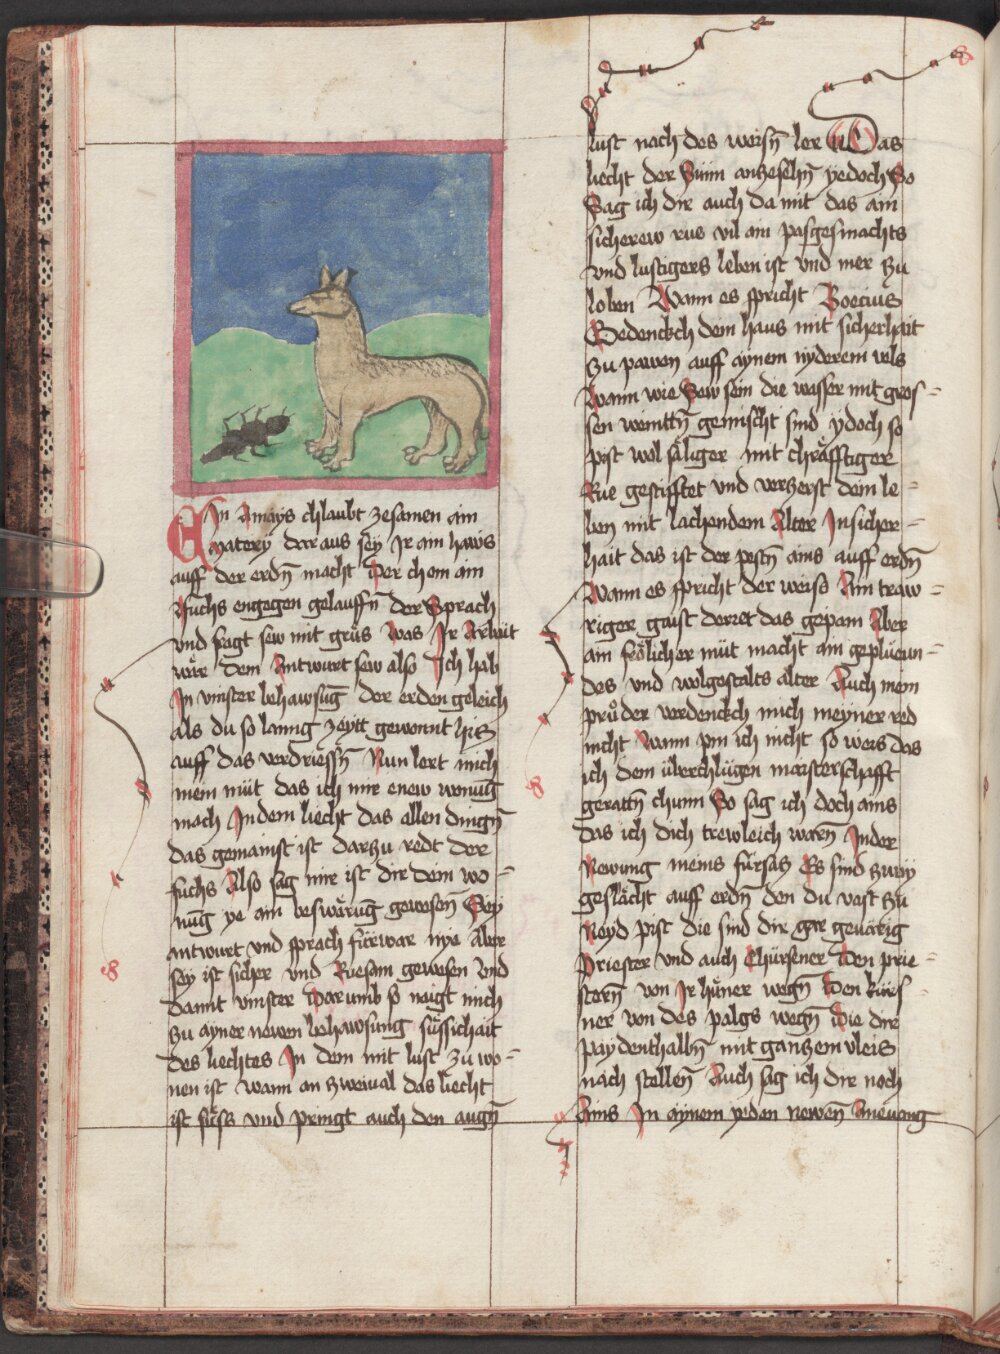 Ein Amays chlaubt zesamen ain
matery dar aus sey Ir ain haws
auff der erdn̄ macht Der chom ain
Fuchs engegen gelauffn̄ der Sprach
vnd fragt sew mit grůs Was Ir Arbait
wär dem Antwurt sew also Ich hab
In vinster behawsūg der erden geleich
als du so lanng zeytt gewonnt his
auff das verdriessn̄ Nun lert mich
mein müt das ich mir enew wonūg
mach In dem liecht das allen dingn̄
das gemainist ist darzu redt der
fuchs Also sag mir ist dir dein wo-
nūg ye ain beswärūg gewesen̄ Sey
antwurt vnd sprach fürwar nye Aber
sey ist sicher vnd Ruesam gewesen vnd
damit vinster Darumb so naigt mich
zu ayner newen behawsung süssichait
des liechtes In dem mit lust zu wo-
nen ist wann an zweiual das liecht
ist süess vnd pringt auch den augn̄
lust nach des weisn̄ ler Das
liecht der Sunn anzesehn̄ yedoch So
Sag ich dir auch da mit das ain
sicherew rue vil ain pasgesmachts
vnd lustigers leben ist vnd mer zu
loben Wann es spricht Boecius
Gedenckch dem haus mit sicherhait
zu pawen auff aynem nyderem vels
Wann wie Sew sein die wasser mit gros-
sen weintn̄ gemischt sind ydoch so
pist wol säliger mit chräfftiger
Rue gestifftet vnd verzerst dein le-
ben mit lachendem Alter In sicher-
hait das ist der pestn̄ ains auff erdn̄
Wann es spricht der weiss Ain traw-
riger gaist derret das gepain Aber
ain frölicher müt macht ain geplüeun-
des vnd wolgestalts alter Auch mein
průder verdenckch mich meyner red
nicht Wann pin ich nicht so weis das
ich dem überchlügen maisterschafft
geratn̄ chunn So sag ich doch ains
das ich dich trewleich warn̄ In der
Newung meins fürsas Es sind zway
geslächt auff erdn̄ den du vast zu
Neyd pist die sind dir gar geuärig
Priester vnd auch Chürsener Den prie-
stern̄ von Ir hüner wegn̄ Den kürs-
ner von des palgs wegn̄ die dir
paydenthalbn̄ mit ganzem vleis
nach stellen̄ Auch sag ich dir noch
Ains In aynem yeden newen̄ Aneuang